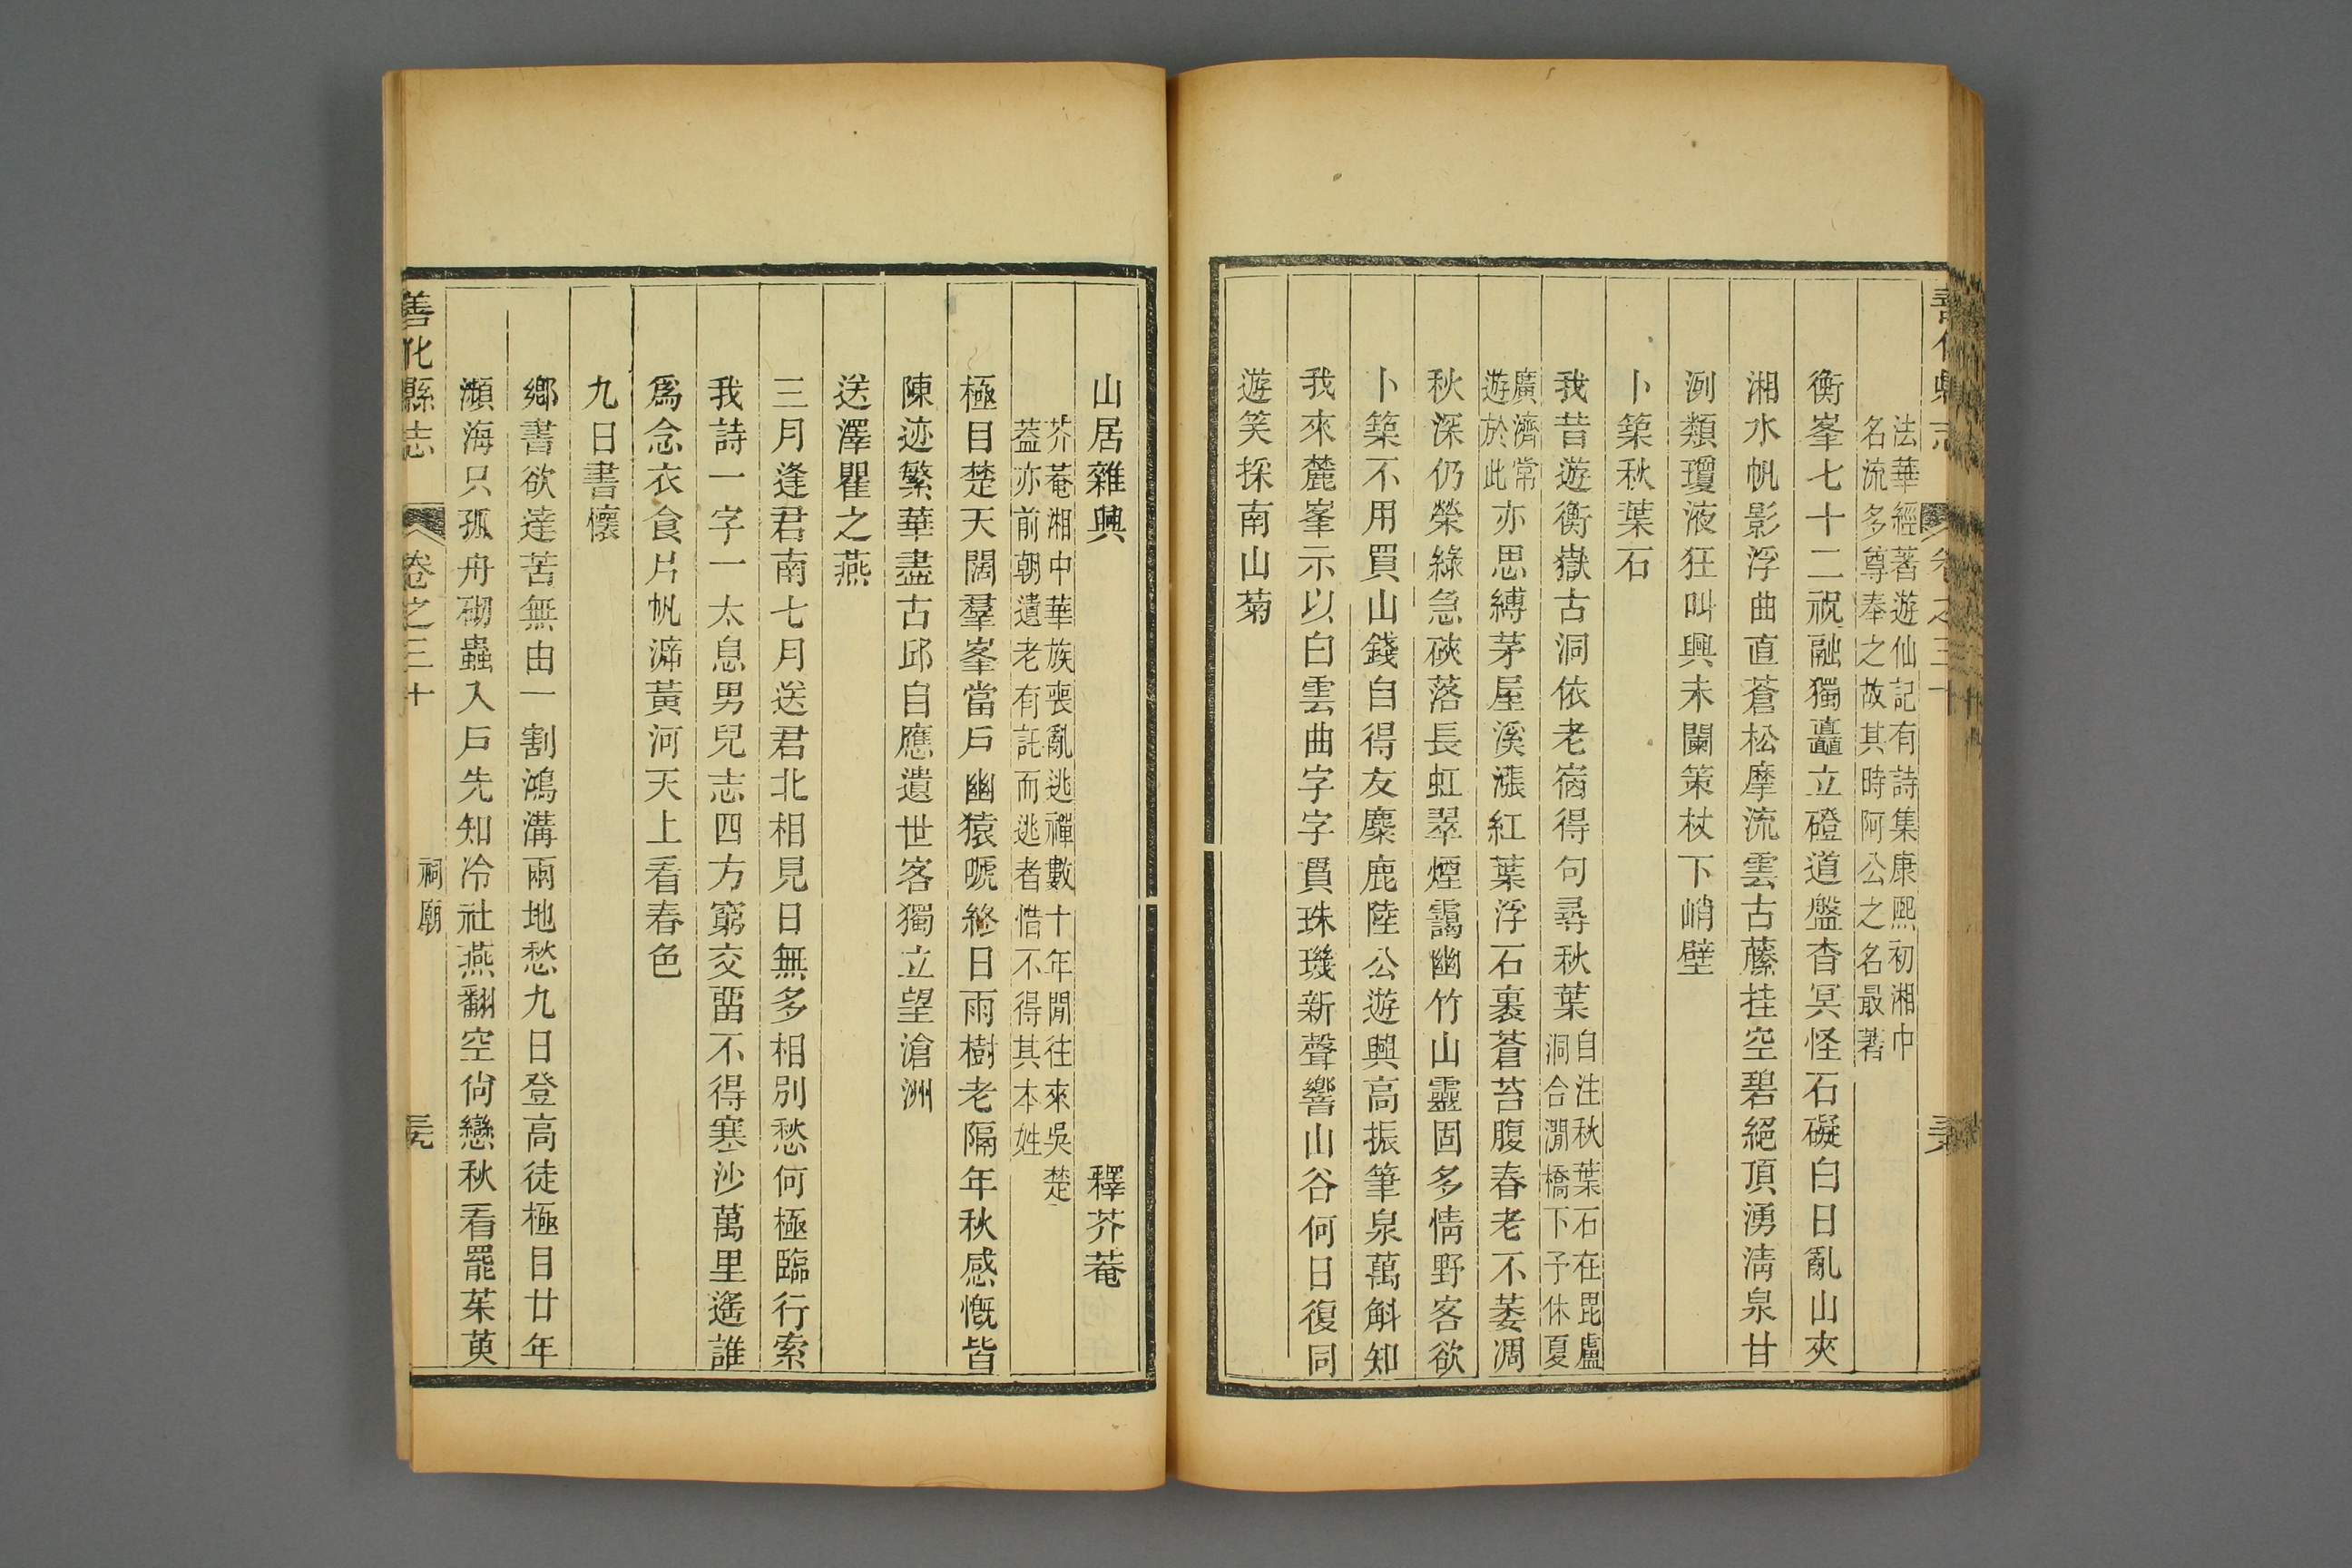 善化縣志
卷之三十
法華經著遊仙記有詩集康熙初湘中
名流多尊奉之故其時阿公之名最著
衡峯七十二祝融獨矗立磴道盤杳冥怪石礙白日亂山夾
湘水帆影浮曲直蒼松摩流雲古藤挂空碧絕頂湧淸泉甘
洌類瓊液狂叫興未闌策杖下峭壁
卜築秋葉石
我昔遊衡嶽古洞依老宿得句尋秋葉
自注秋葉石在毘盧
洞合澗橋下予休夏
廣濟常
遊於此
亦思縛茅屋溪漲紅葉浮石裏蒼苔腹春老不萎凋
秋深仍榮綠急硤落長虹翠煙靄幽竹山靈固多情野客欲
卜築不用買山錢自得友麋鹿陸公遊興高振筆泉萬斛知
我來麓峯示以白雲曲字字貫珠璣新聲響山谷何日復同
遊笑採南山菊
山居雜興
釋芥菴
芥菴湘中華族喪亂逃禪數十年閒往來吳楚
葢亦前朝遺老有託而逃者惜不得其本姓
極目楚天闊羣峯當戶幽猿嗁終日雨樹老隔年秋感慨皆
陳迹繁華盡古邱自應遺世客獨立望滄洲
送澤瞿之燕
三月逢君南七月送君北相見日無多相別愁何極臨行索
我詩一字一太息男兒志四方窮交畱不得寒沙萬里遙誰
爲念衣食片帆濟黃河天上看春色
九日書懷
鄕書欲達苦無由一割鴻溝兩地愁九日登高徒極目廿年
瀕海只孤舟砌蟲入戶先知冷社燕翻空尙戀秋看罷茱萸
善化縣志
卷之三十
祠廟